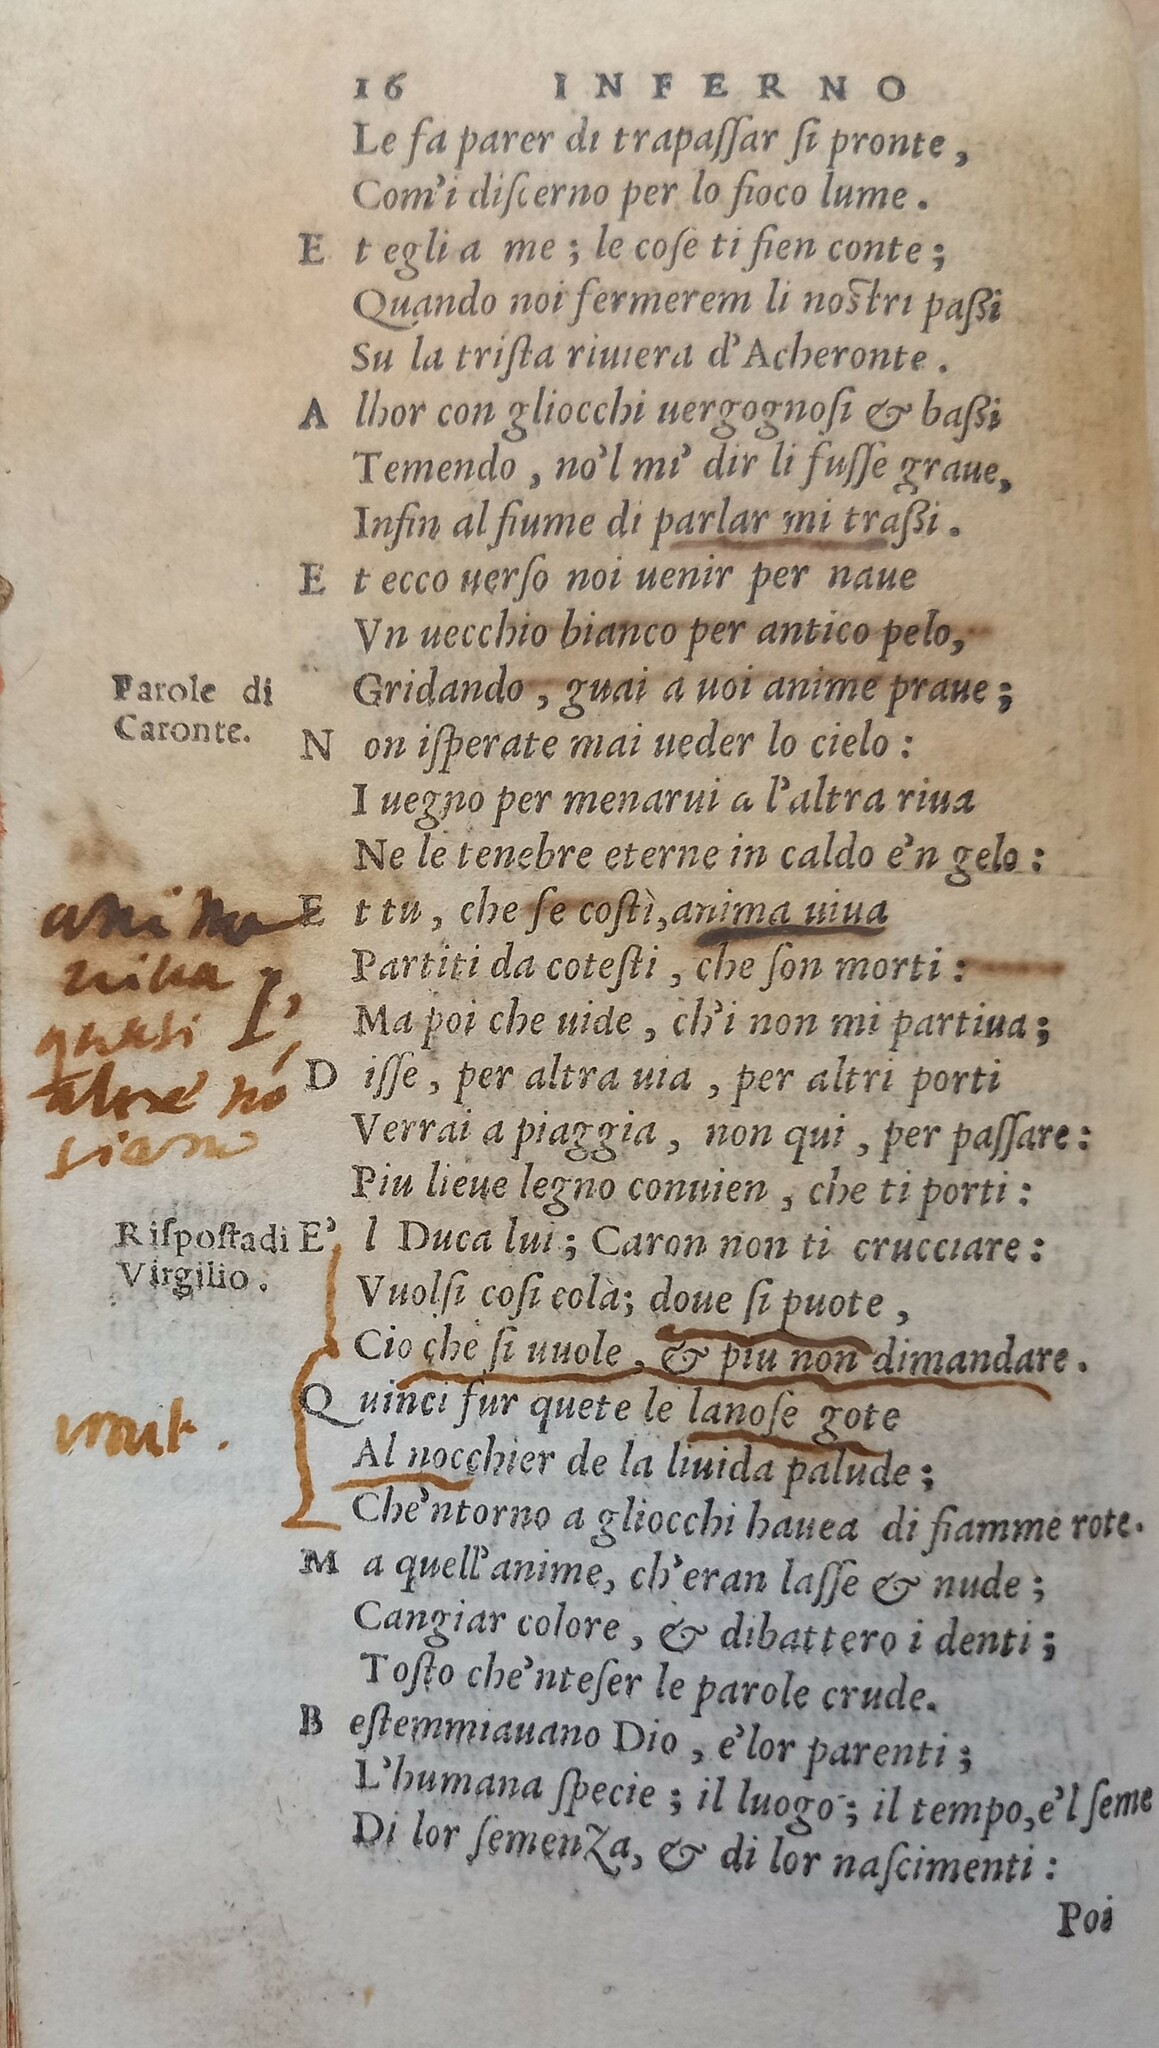 16 INFERNO
Le fa parer di trapaſſar ſi pronte,
Com'i diſcerno per lo fioco lume.
E t egli a me; le coſe ti fien conte;
Quando noi fermerem li noſtri paßi
Su la triſta riuiera d'Acheronte.
A lhor con gliocchi uergognoſi & baßi
Temendo, no'l mi' dir li fuſſe graue,
Infin al fiume di parlar mi traßi.
E t ecco uerſo noi uenir per naue
Vn uecchio bianco per antico pelo,
Gridando, guai a uoi anime praue;
Parole di
Caronte.
N on iſperate mai ueder lo cielo:
I uegno per menarui a l'altra riua
Ne le tenebre eterne in caldo e'n gelo:
E t tu, che ſe coſtì, anima uiua
Partiti da coteſti, che ſon morti:
anima
uiua
quasi l'
altre nō
siano
Ma poi che uide, ch'i non mi partiua;
D iſſe, per altra uia, per altri porti
Verrai a piaggia, non qui, per paſſare:
Piu lieue legno conuien, che ti porti:
Riſpoſta di
Virgilio.
E' l Duca lui; Caron non ti crucciare:
Vuolſi coſi colà; doue ſi puote,
Cio che ſi uuole, & piu non dimandare.
Q uinci fur quete le lanoſe gote
Al nocchier de la liuida palude;
Che'ntorno a gliocchi hauea di fiamme rote.
M a quell'anime, ch'eran laſſe & nude;
Cangiar colore, & dibattero i denti;
Toſto che'nteſer le parole crude.
B eſtemmiauano Dio, e'lor parenti;
L'humana ſpecie; il luogo; il tempo, e'l ſeme
Di lor ſemenza, & di lor naſcimenti:
Poi